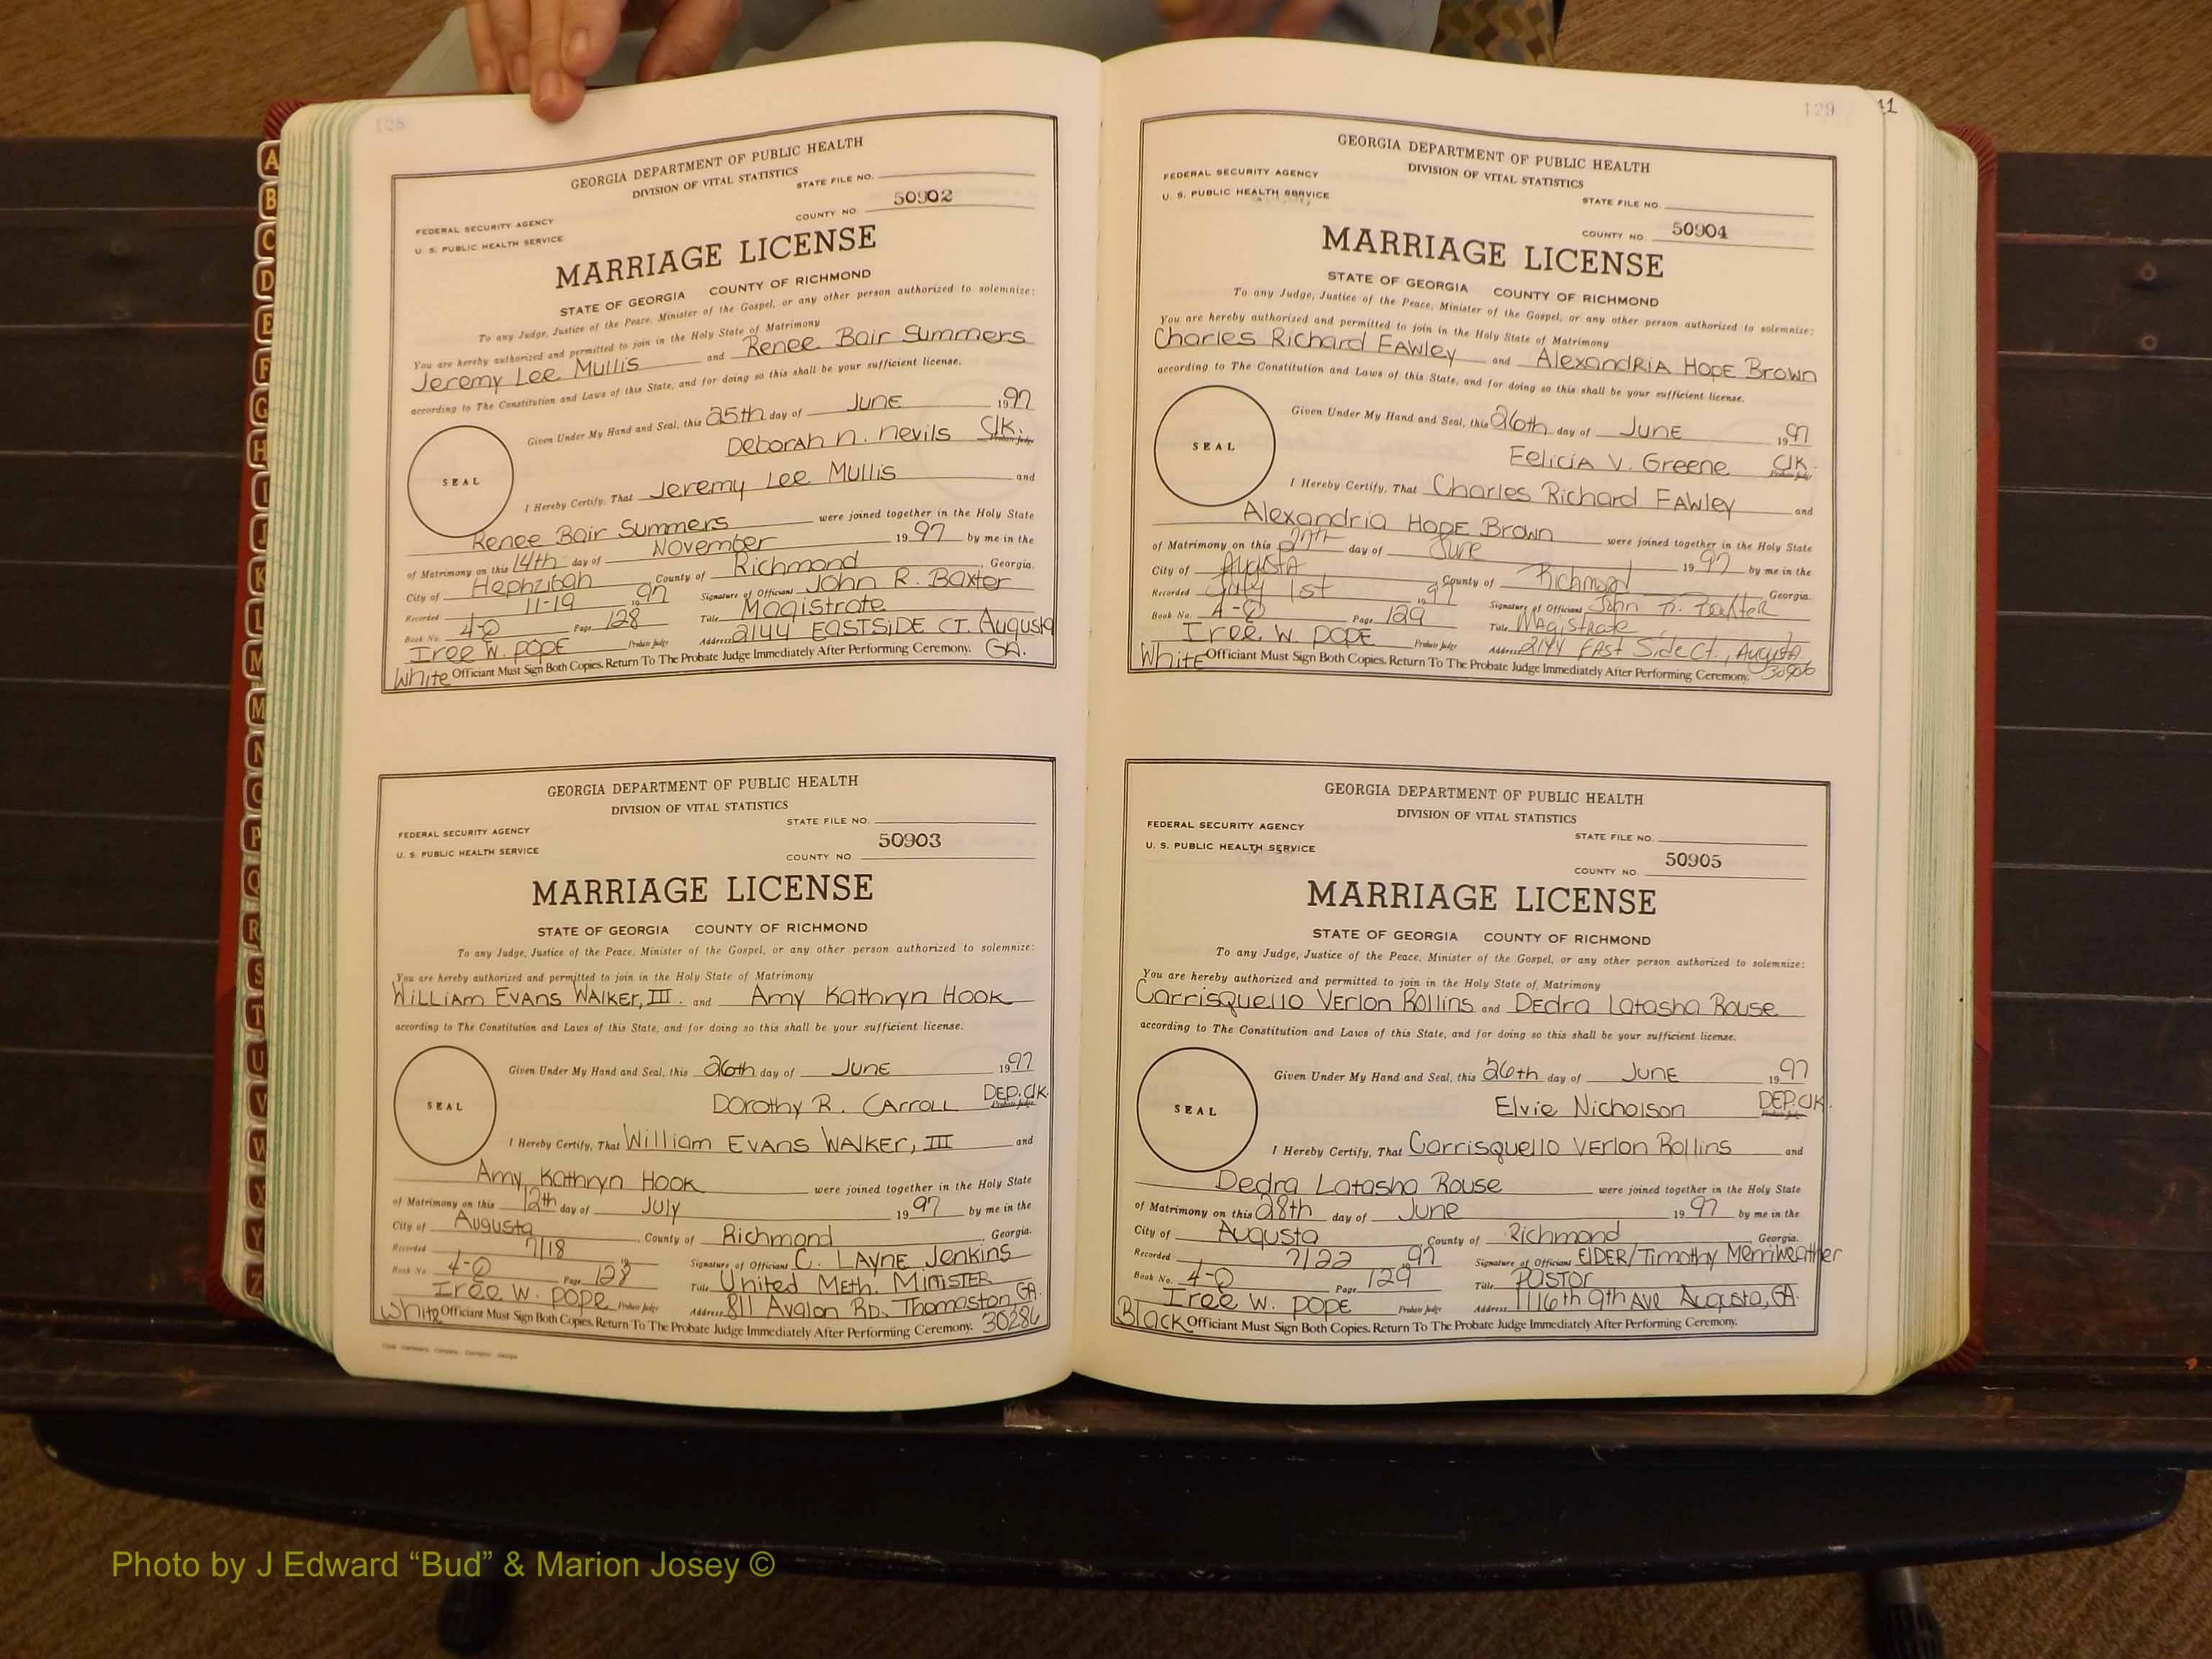 128
GEORGIA DEPARTMENT OF PUBLIC HEALTH
DIVISION OF VITAL STATISTICS
STATE FILE NO.
FEDERAL SECURITY AGENCY
U. S. PUBLIC HEALTH SERVICE
COUNTY NO. 50902
MARRIAGE LICENSE
STATE OF GEORGIA COUNTY OF RICHMOND
To any Judge, Justice of the Peace, Minister of the Gospel, or any other person authorized to solemnize:
You are hereby authorized and permitted to join in the Holy State of Matrimony
Jeremy Lee Mullis and Renee Bair Summers
according to The Constitution and Laws of this State, and for doing so this shall be your sufficient license.
Given Under My Hand and Seal, this 25th day of JUNE 1997
Deborah N. Nevils Clk. Probate Judge
SEAL
I Hereby Certify, That Jeremy Lee Mullis and
Renee Bair Summers were joined together in the Holy State
of Matrimony on this 14th day of November 1997 by me in the
City of Hephzibah, County of Richmond, Georgia.
Recorded 11-19 1997 Signature of Officiant John R. Baxter
Book No. 4-Q Page 128 Title Magistrate
Iree W. POPE Probate Judge Address 2144 EASTSIDE CT. Augusta
White Officiant Must Sign Both Copies. Return To The Probate Judge Immediately After Performing Ceremony. GA.
GEORGIA DEPARTMENT OF PUBLIC HEALTH
DIVISION OF VITAL STATISTICS
STATE FILE NO.
FEDERAL SECURITY AGENCY
U. S. PUBLIC HEALTH SERVICE
COUNTY NO. 50903
MARRIAGE LICENSE
STATE OF GEORGIA COUNTY OF RICHMOND
To any Judge, Justice of the Peace, Minister of the Gospel, or any other person authorized to solemnize:
You are hereby authorized and permitted to join in the Holy State of Matrimony
William Evans Walker, III. and Amy Kathryn Hook
according to The Constitution and Laws of this State, and for doing so this shall be your sufficient license.
Given Under My Hand and Seal, this 26th day of JUNE 1997
Dorothy R. Carroll DEP. Clk. Probate Judge
SEAL
I Hereby Certify, That William Evans Walker, III and
Amy Kathryn Hook were joined together in the Holy State
of Matrimony on this 12th day of July 1997 by me in the
City of Augusta, County of Richmond, Georgia.
Recorded 7/18 19 Signature of Officiant C. LAYNE Jenkins
Book No. 4-Q Page 128 Title United Meth. Minister
Iree W. pope Probate Judge Address 811 Avalon RD. Thomaston GA.
White Officiant Must Sign Both Copies. Return To The Probate Judge Immediately After Performing Ceremony. 30286
129
11
GEORGIA DEPARTMENT OF PUBLIC HEALTH
DIVISION OF VITAL STATISTICS
FEDERAL SECURITY AGENCY
U. S. PUBLIC HEALTH SERVICE
STATE FILE NO.
COUNTY NO. 50904
MARRIAGE LICENSE
STATE OF GEORGIA COUNTY OF RICHMOND
To any Judge, Justice of the Peace, Minister of the Gospel, or any other person authorized to solemnize:
You are hereby authorized and permitted to join in the Holy State of Matrimony
Charles Richard Fawley and Alexandria Hope Brown
according to The Constitution and Laws of this State, and for doing so this shall be your sufficient license.
Given Under My Hand and Seal, this 26th day of JUNE 1997
Eelicia V. Greene Clk. Probate Judge
SEAL
I Hereby Certify, That Charles Richard Fawley and
Alexandria Hope Brown were joined together in the Holy State
of Matrimony on this 27th day of June 1997 by me in the
City of Augusta, County of Richmond, Georgia.
Recorded July 1st 1997 Signature of Officiant John R. Baxter
Book No. 4-Q Page 129 Title Magistrate
Iree W. POPE Probate Judge Address 2144 East Side Ct., Augusta
White Officiant Must Sign Both Copies. Return To The Probate Judge Immediately After Performing Ceremony. 30906
GEORGIA DEPARTMENT OF PUBLIC HEALTH
DIVISION OF VITAL STATISTICS
FEDERAL SECURITY AGENCY
STATE FILE NO.
U. S. PUBLIC HEALTH SERVICE
COUNTY NO. 50905
MARRIAGE LICENSE
STATE OF GEORGIA COUNTY OF RICHMOND
To any Judge, Justice of the Peace, Minister of the Gospel, or any other person authorized to solemnize:
You are hereby authorized and permitted to join in the Holy State of Matrimony
Carrisquello Verlon Rollins and Dedra Latasha Rouse
according to The Constitution and Laws of this State, and for doing so this shall be your sufficient license.
Given Under My Hand and Seal, this 26th day of JUNE 1997
Elvie Nicholson DEP. Clk. Probate Judge
SEAL
I Hereby Certify, That Carrisquello Verlon Rollins and
Dedra Latasha Rouse were joined together in the Holy State
of Matrimony on this 28th day of June 1997 by me in the
City of Augusta, County of Richmond, Georgia.
Recorded 7/22 1997 Signature of Officiant ElDER/Timothy Merriweather
Book No. 4-Q Page 129 Title Pastor
Iree W. POPE Probate Judge Address 1116th 9th Ave Augusta, GA.
Black Officiant Must Sign Both Copies. Return To The Probate Judge Immediately After Performing Ceremony.
A
B
C
D
E
F
G
H
I
J
K
L
M
M
N
O
P
Q
R
S
T
U
V
W
X
Y
Z
Photo by J Edward “Bud” & Marion Josey ©